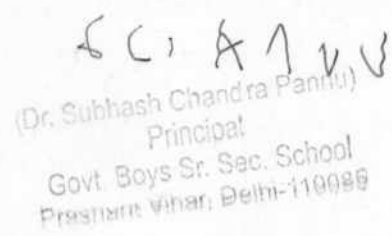 (Dr. Subhash Chandra Pannu)
Principal
Govt. Boys Sr. Sec. School
Prashant Vihar, Delhi-110085